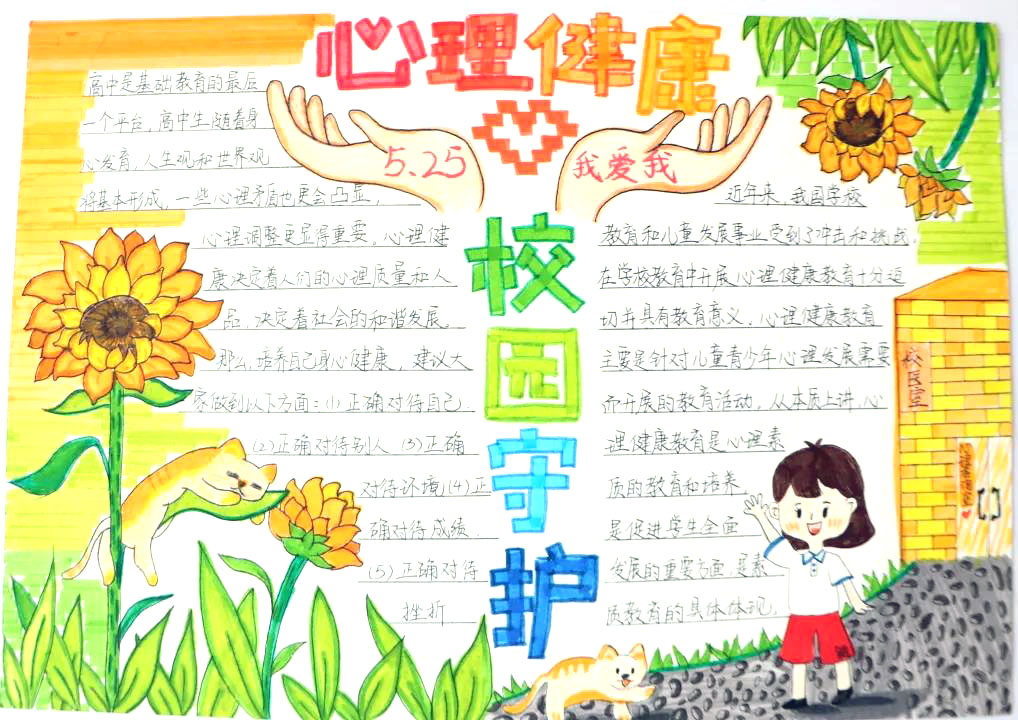 心理健康
5.25
我爱我
校园守护
高中是基础教育的最后
一个平台，高中生随着身
心发育，人生观和世界观
将基本形成，一些心理矛盾也更会凸显，
心理调整更显得重要。心理健
康决定着人们的心理质量和人
品，决定着社会的和谐发展。
那么，培养自己身心健康，建议大
家做到以下方面：(1)正确对待自己
(2)正确对待别人 (3)正确
对待环境 (4)正
确对待成绩.
(5)正确对待
挫折
近年来，我国学校
教育和儿童发展事业受到了冲击和挑战.
在学校教育中开展心理健康教育十分迫
切并具有教育意义，心理健康教育
主要是针对儿童青少年心理发展需要
而开展的教育活动，从本质上讲，心
理健康教育是心理素
质的教育和培养
是促进学生全面
发展的重要方面，是素
质教育的具体体现，
校医室